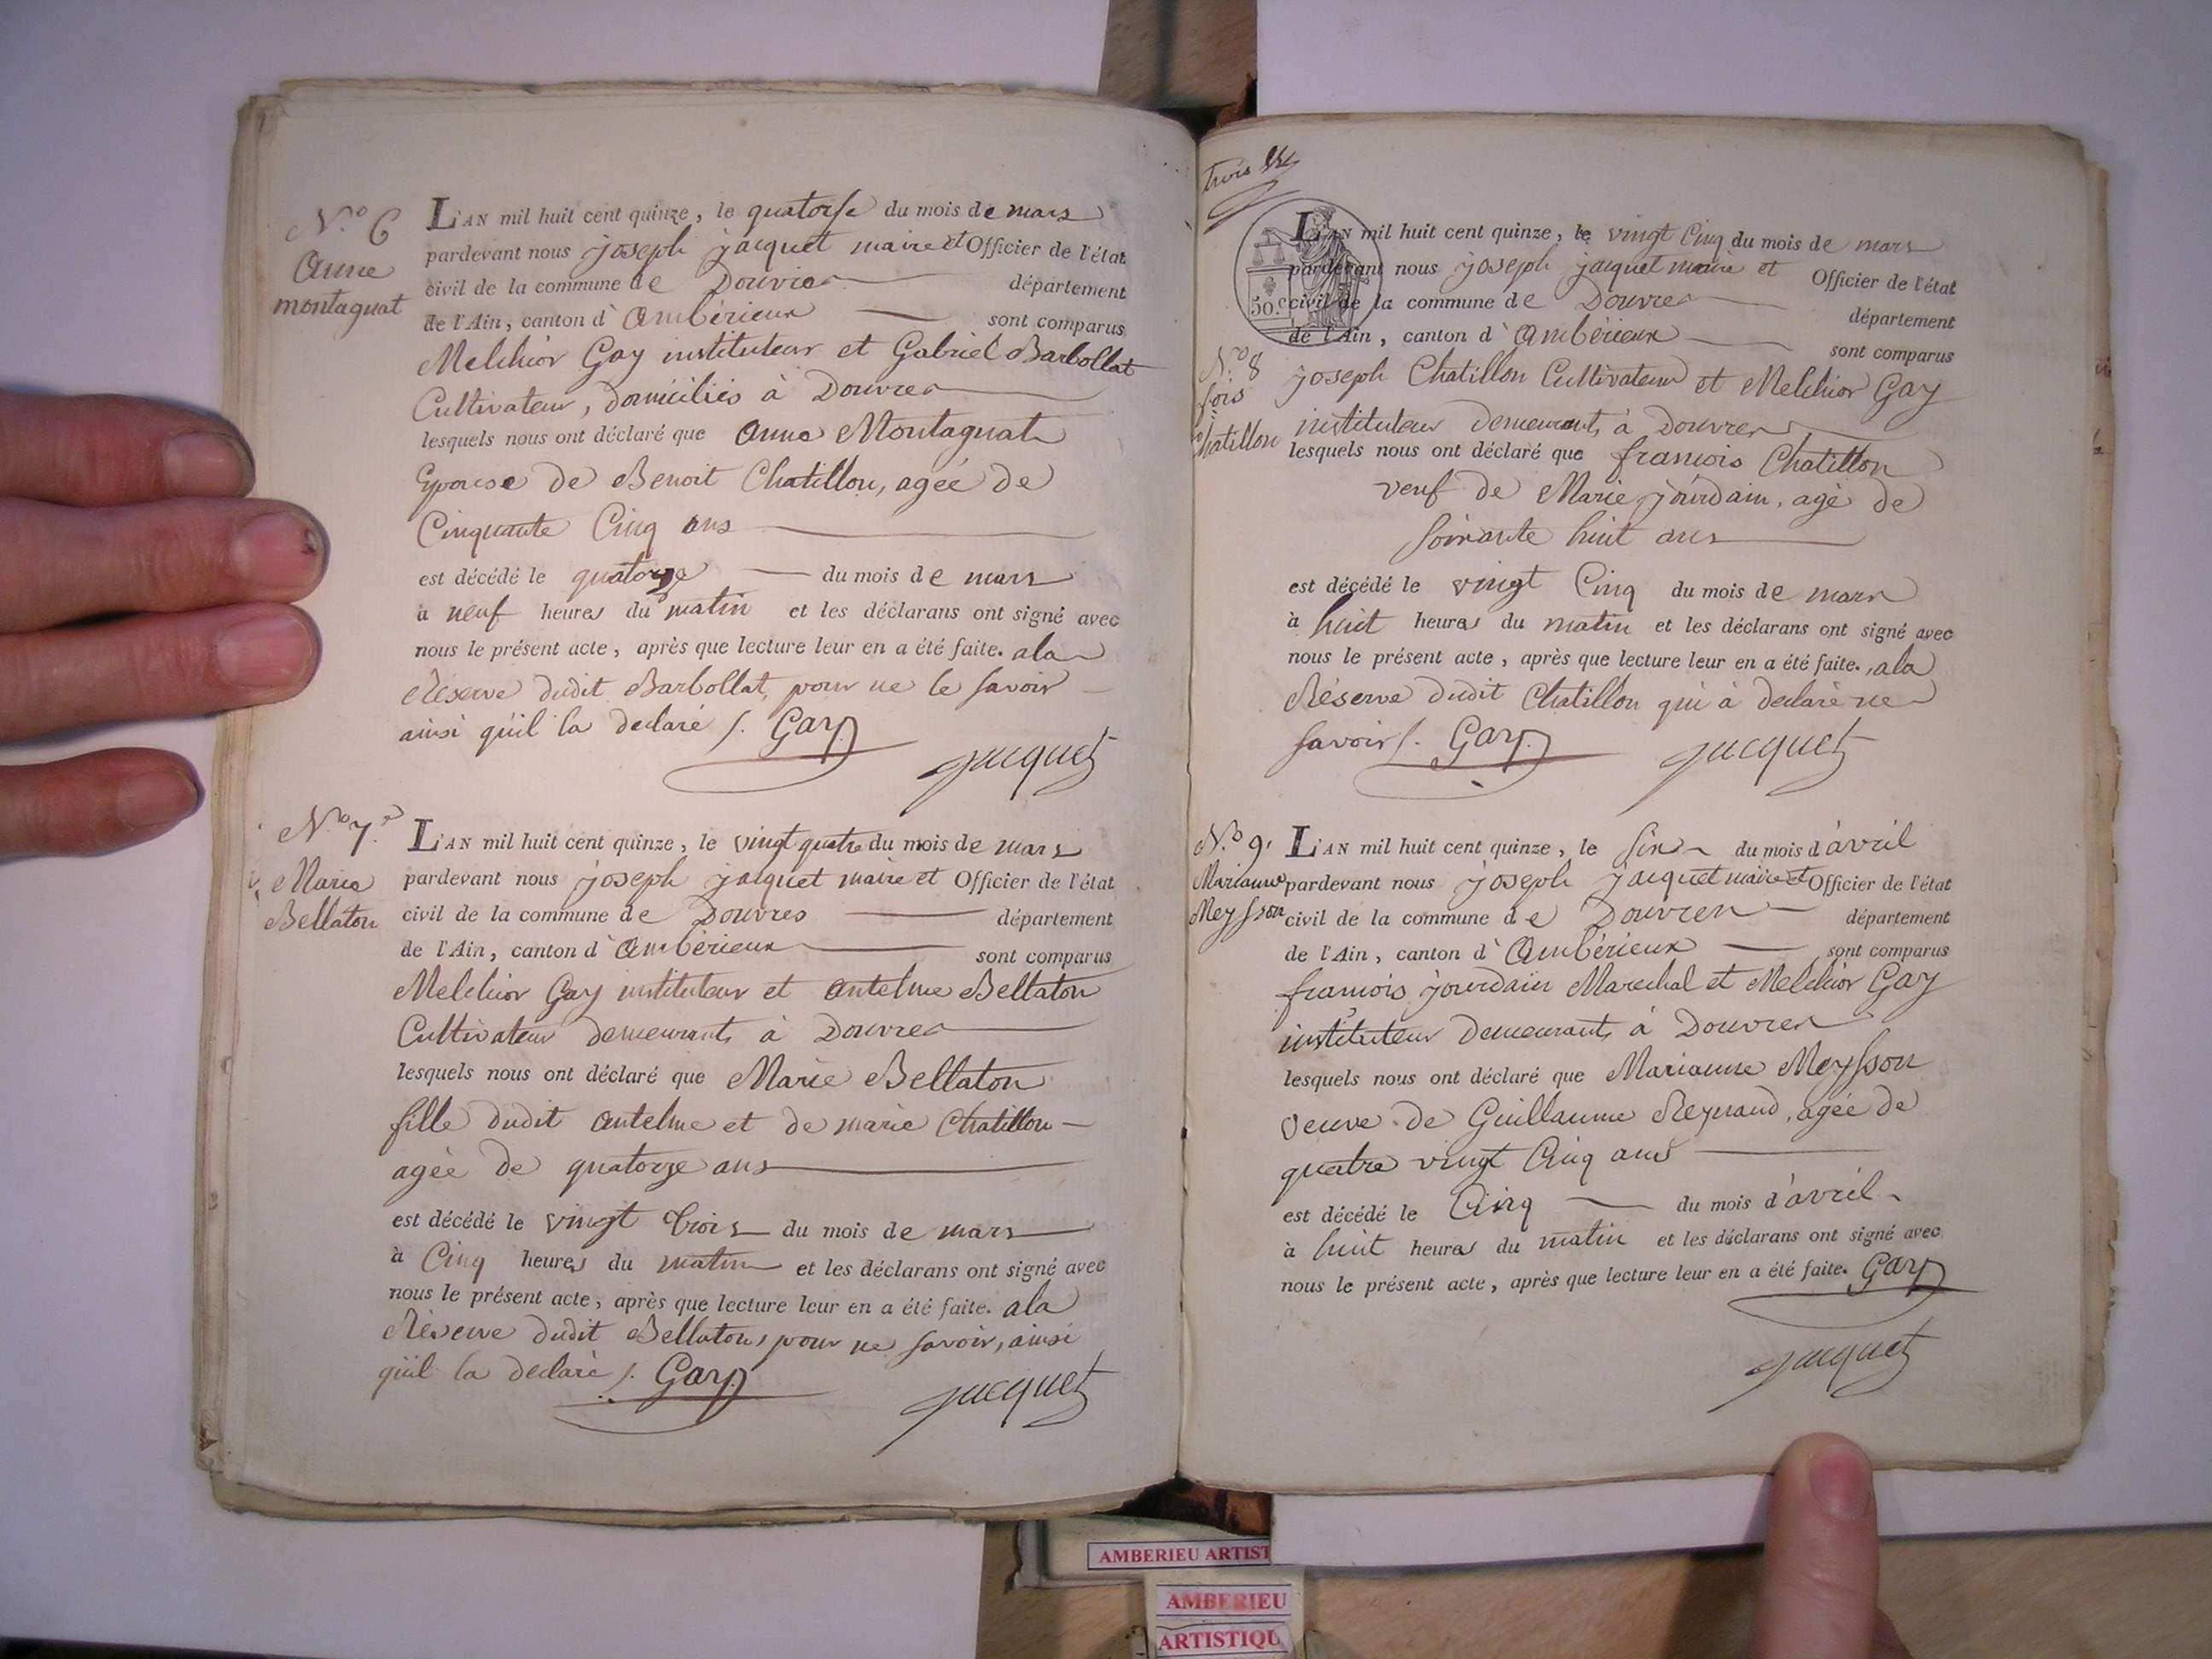 N.º 6
Anne
montagnat
L'AN mil huit cent quinze, le quatorse du mois de mars
pardevant nous joseph jacquet maire et Officier de l'état
civil de la commune de Douvres département
de l'Ain, canton d'Ambérieux sont comparus
Melchior Gay instituteur et Gabriel Barbollat
Cultivateur, domiciliés à Douvres
lesquels nous ont déclaré que Anne Montagnat
Epouse de Benoit Chatillon, agée de
Cinquante Cinq ans
est décédé le quatorze du mois de mars
à neuf heures du matin et les déclarans ont signé avec
nous le présent acte, après que lecture leur en a été faite. ala
Réserve dudit Barbollat, pour ne le savoir
ainsi qu'il la declaré /. Gay
Jacquet
N.º 7.
Marie
Bellaton
L'AN mil huit cent quinze, le vingt quatre du mois de mars
pardevant nous joseph jacquet maire et Officier de l'état
civil de la commune de Douvres département
de l'Ain, canton d'Ambérieux sont comparus
Melchior Gay instituteur et antelme Bellaton
Cultivateur demeurants à Douvres
lesquels nous ont déclaré que Marie Bellaton
fille dudit antelme et de marie Chatillon
agée de quatorze ans
est décédé le vingt trois du mois de mars
à Cinq heures du matin et les déclarans ont signé avec
nous le présent acte, après que lecture leur en a été faite. ala
Réserve dudit Bellaton, pour ne savoir, ainsi
qu'il la declaré /. Gay
Jacquet
trois
50.c
L'AN mil huit cent quinze, le vingt Cinq du mois de mars
pardevant nous joseph jacquet maire et Officier de l'état
civil de la commune de Douvres département
de l'Ain, canton d'Ambérieux sont comparus
N.º 8
fois
Chatillon
joseph Chatillon Cultivateur et Melchior Gay
instituteur demeurants à Douvres
lesquels nous ont déclaré que francois Chatillon
veuf de Marie jourdain, agé de
soixante huit ans
est décédé le vingt Cinq du mois de mars
à huit heures du matin et les déclarans ont signé avec
nous le présent acte, après que lecture leur en a été faite. ala
Réserve dudit Chatillon qui à declaré ne
savoir /. Gay
Jacquet
N.º 9.
Marianne
Meysson
L'AN mil huit cent quinze, le six du mois d'avril
pardevant nous joseph jacquet maire et Officier de l'état
civil de la commune de Douvres département
de l'Ain, canton d'Ambérieux sont comparus
francois jourdain Marechal et Melchior Gay
instituteur demeurants à Douvres
lesquels nous ont déclaré que Marianne Meysson
veuve de Guillaume Reynaud, agée de
quatre vingt Cinq ans
est décédé le Cinq du mois d'avril
à huit heures du matin et les déclarans ont signé avec
nous le présent acte, après que lecture leur en a été faite. Gay
Jacquet
AMBERIEU ARTIST
AMBERIEU
ARTISTIQU